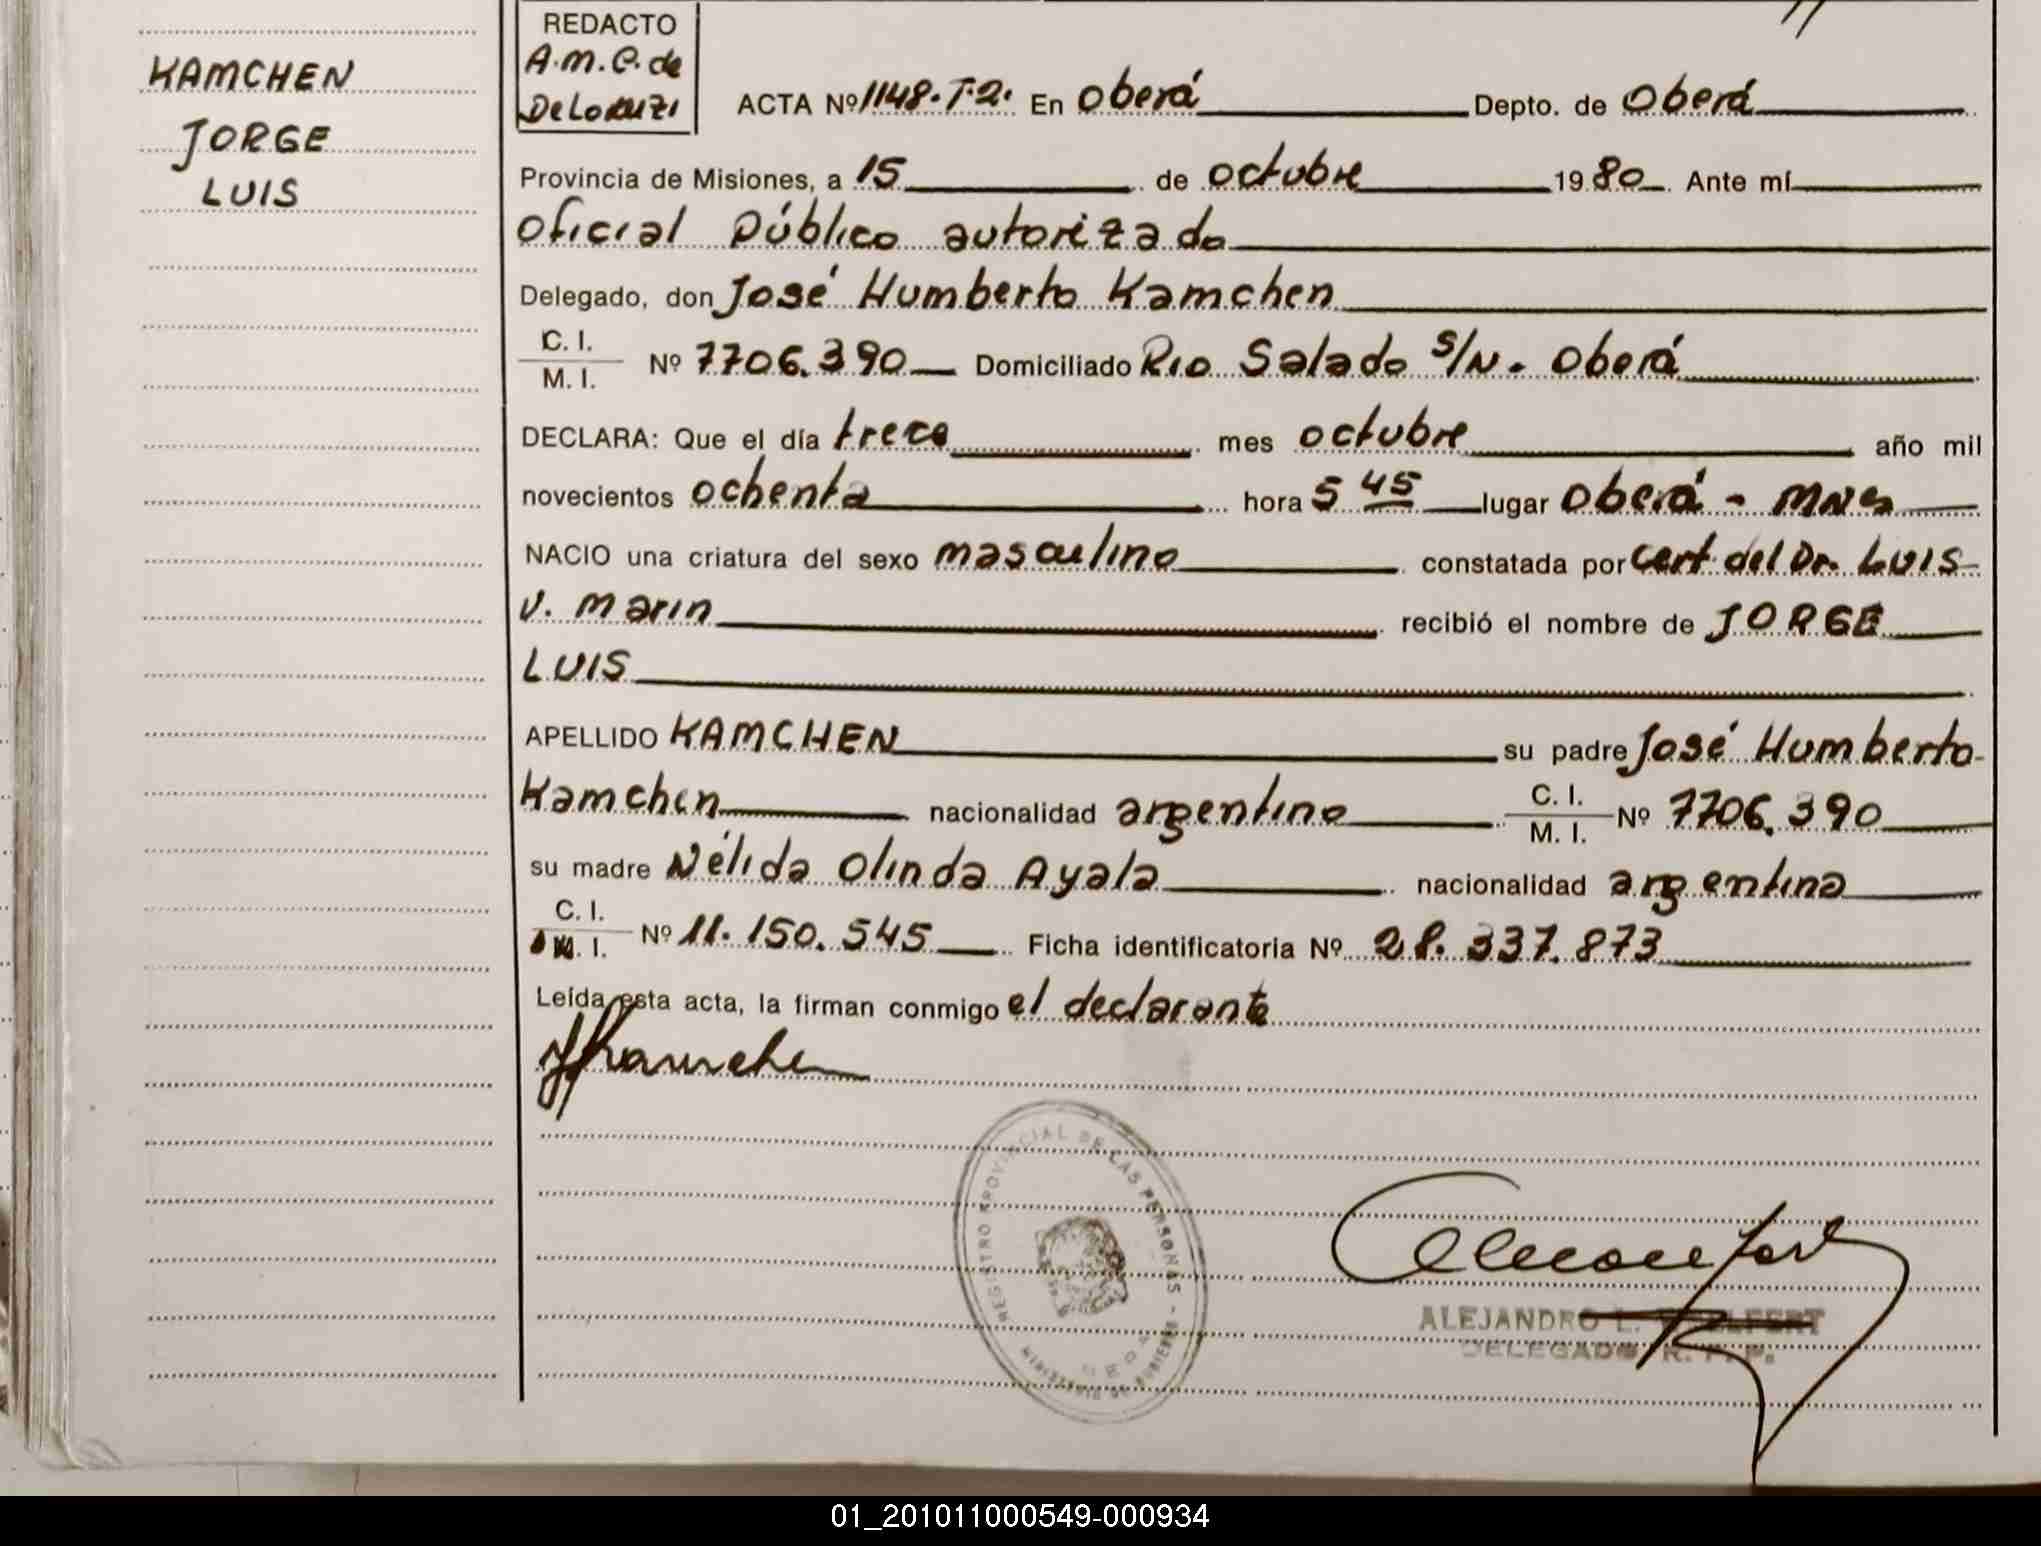 KAMCHEN
JORGE
LUIS
REDACTO
A.M.C. de
DeLorenzi
ACTA Nº 1148.T.2. En Oberá Depto. de Oberá
Provincia de Misiones, a 15 de octubre 1980 Ante mí
Oficial Público autorizado
Delegado, don José Humberto Kamchen
C. I.
M. I. Nº 7706.390 Domiciliado Rio Salado S/N. Oberá
DECLARA: Que el día trece mes octubre año mil
novecientos ochenta hora 5 45 lugar Oberá - MNES
NACIO una criatura del sexo masculino constatada por Cert. del Dr. LUIS
V. Marin recibió el nombre de JORGE
LUIS
APELLIDO KAMCHEN su padre José Humberto
Kamchen nacionalidad argentino C. I. M. I. Nº 7706.390
su madre Nélida Olinda Ayala nacionalidad argentina
C. I.
M. I. Nº 11.150.545 Ficha identificatoria Nº 28.337.873
Leída esta acta, la firman conmigo el declarante
REGISTRO PROVINCIAL DE LAS PERSONAS - MINISTERIO DE GOBIERNO
ALEJANDRO L.
DELEGADO R. P. P.
01_201011000549-000934